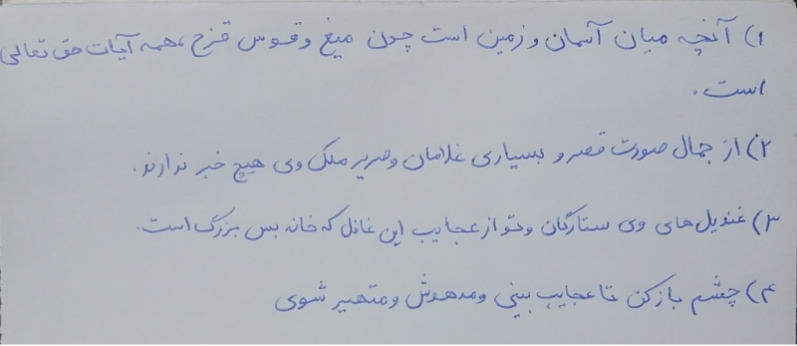 ۱) آنچه میان آسمان و زمین است چون میغ و قوس قزح، همه آیات حق تعالی
است.
۲) از جمال صورت قصر و بسیاری غلامان و صریر ملک وی هیچ خبر ندارند.
۳) غندیل های وی ستارگان و تو از عجایب این غافل که خانه بس بزرگ است.
۴) چشم باز کن تا عجایب بینی و مدهوش و متهیر شوی